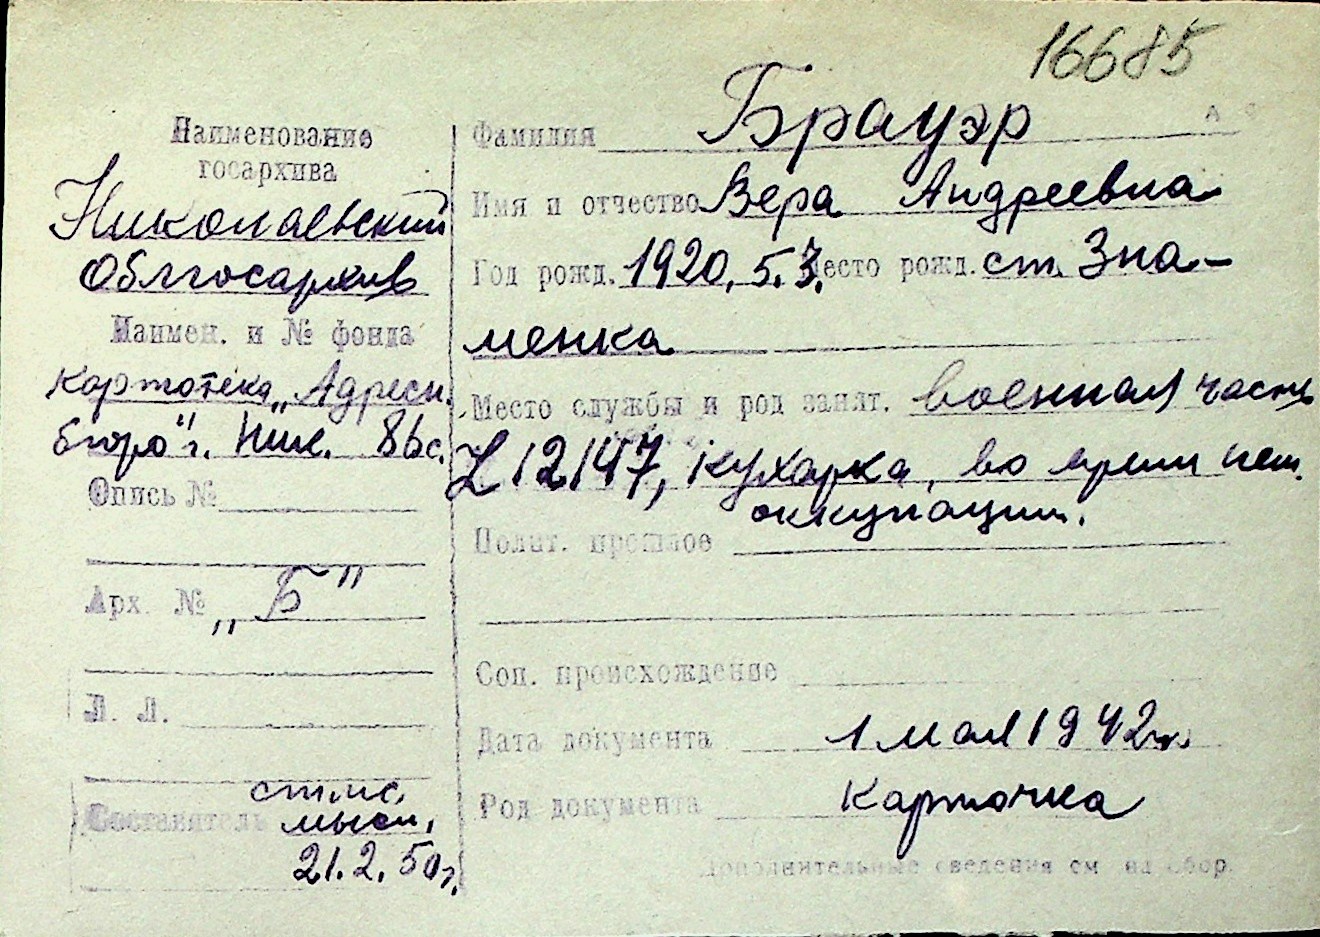 16685
Наименование
госархива
Николаевский
Облгосархив
Наимен. и № фонда
картотека „Адресн.
бюро" г. Ник.
Опись №
Арх. № „Б"
Л. Л.
Составитель
21.2.50г.
Фамилия Брауэр
Имя и отчество Вера Андреевна
Год рожд. 1920, 5.3. Место рожд. ст. Зна-
менка
Место службы и род занят. военная часть
L 12147, кухарка, во время нем.
оккупации.
Полит. прошлое
Соц. происхождение
Дата документа 1 мая 1942г.
Род документа карточка
Дополнительные сведения см на обор.